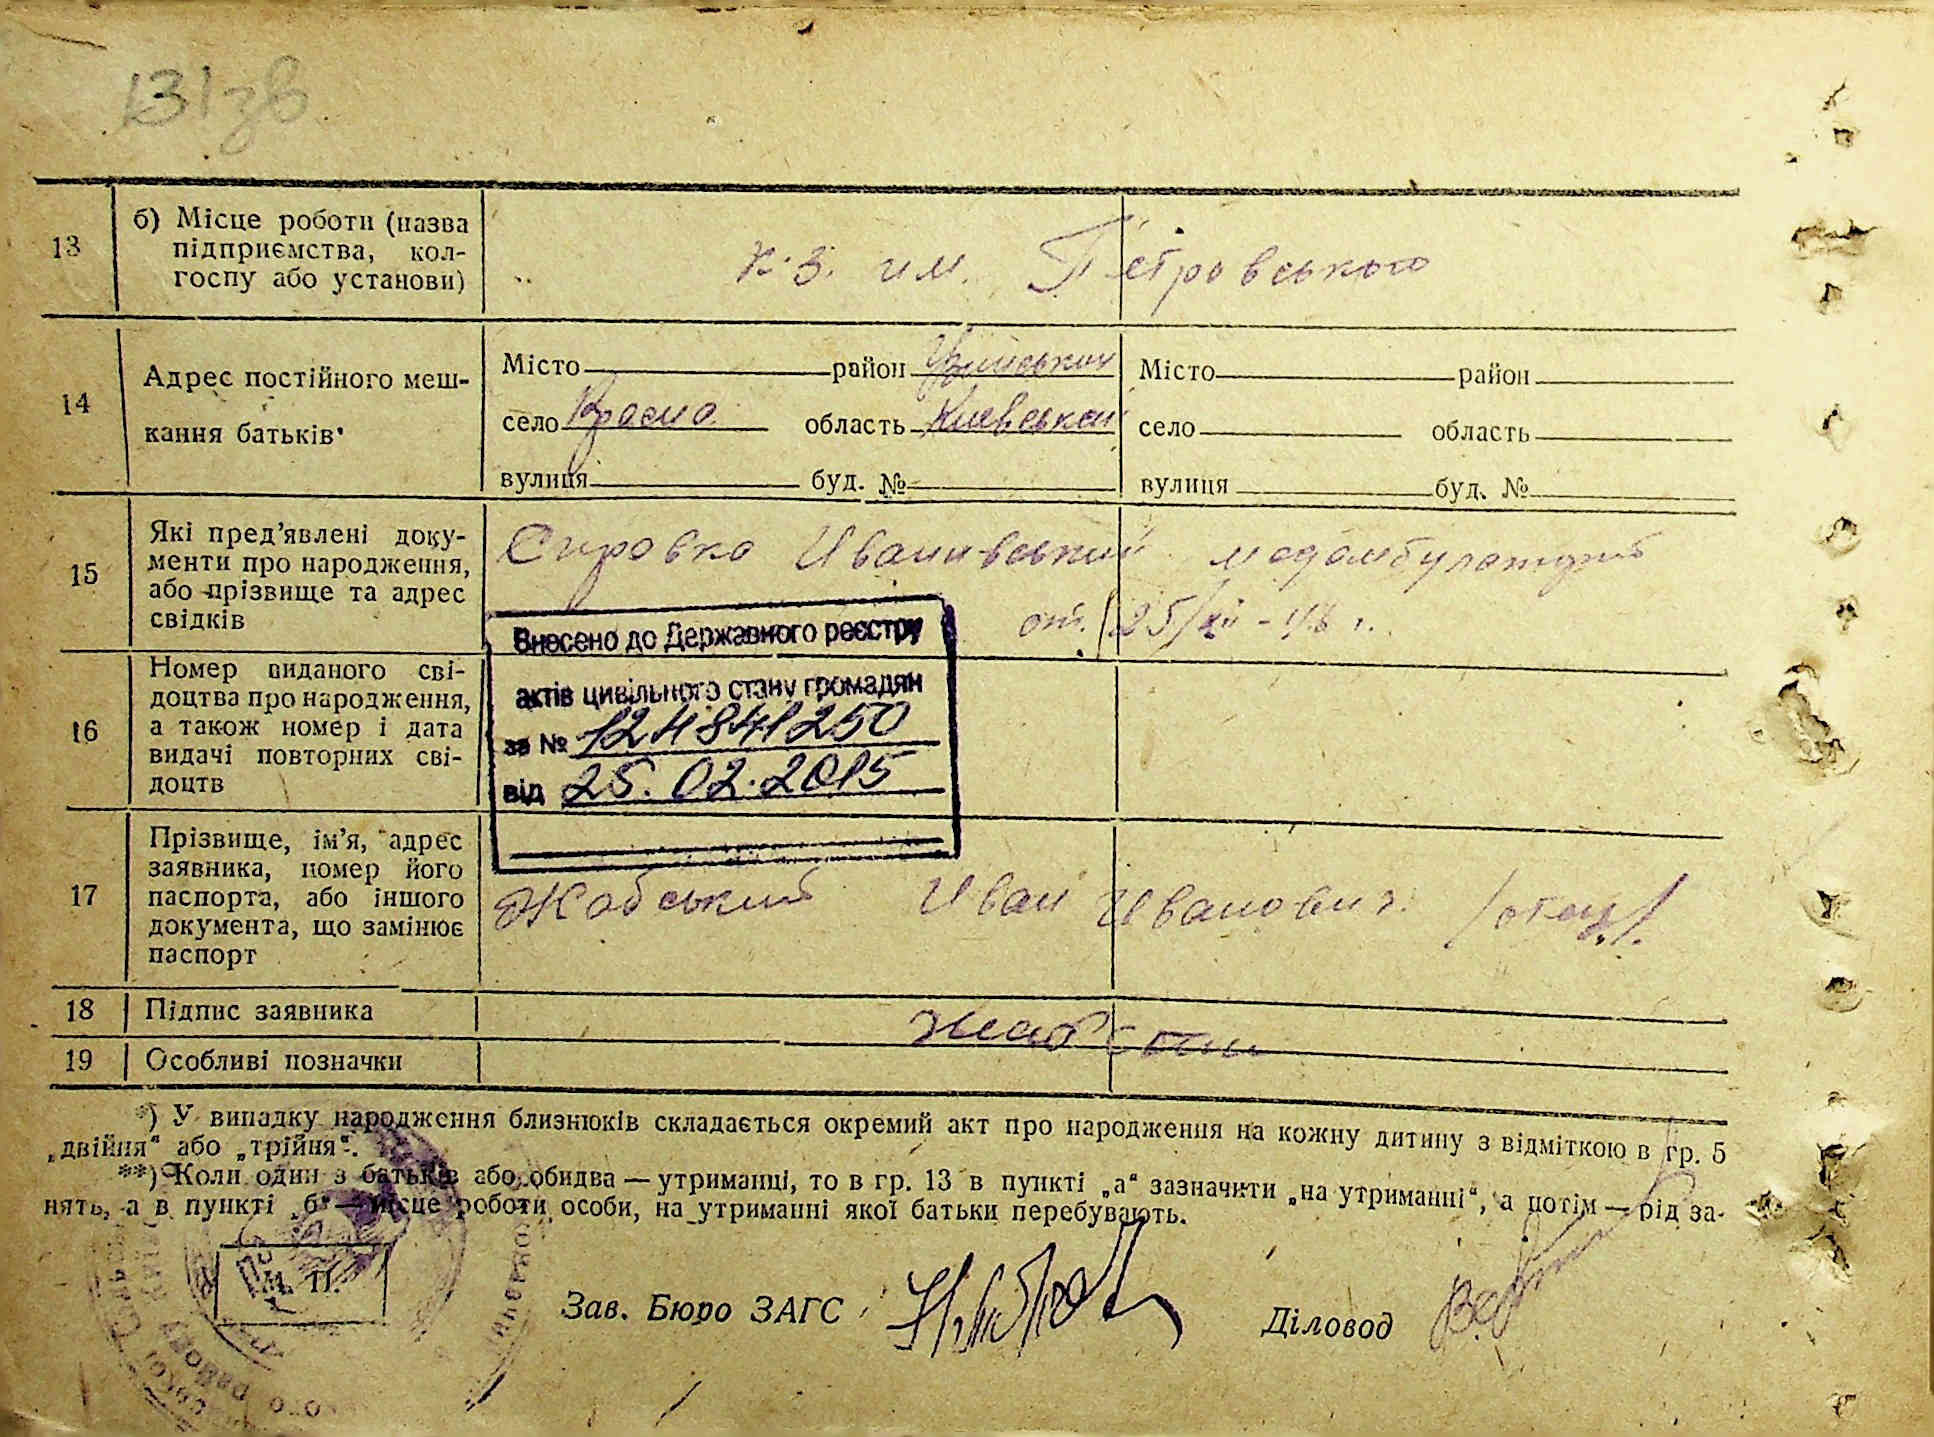 131 зв
13
б) Місце роботи (назва
підприємства, кол-
госпу або установи)
к.з. им. Петровського
14
Адрес постійного меш-
кання батьків
Місто район
село Красна область Киевської
вулиця буд. №
Місто район
село область
вулиця буд. №
15
Які пред’явлені доку-
менти про народження,
або прізвище та адрес
свідків
Справка Иванивський
от 25/XII-48 г.
16
Номер виданого сві-
доцтва про народження,
а також номер і дата
видачі повторних сві-
доцтв
Внесено до Державного реєстру
актів цивільного стану громадян
за № 124841250
від 25.02.2015
17
Прізвище, ім’я, адрес
заявника, номер його
паспорта, або іншого
документа, що замінює
паспорт
Жабський Иван Иванович /отец/.
18
Підпис заявника
19
Особливі позначки
*) У випадку народження близнюків складається окремий акт про народження на кожну дитину з відміткою в гр. 5
„двійня“ або „трійня“.
**) Коли один з батьків або обидва — утриманці, то в гр. 13 в пункті „а“ зазначити „на утриманні“, а потім — рід за-
нять, а в пункті „б“ — місце роботи особи, на утриманні якої батьки перебувають.
М. П.
Зав. Бюро ЗАГС
Діловод